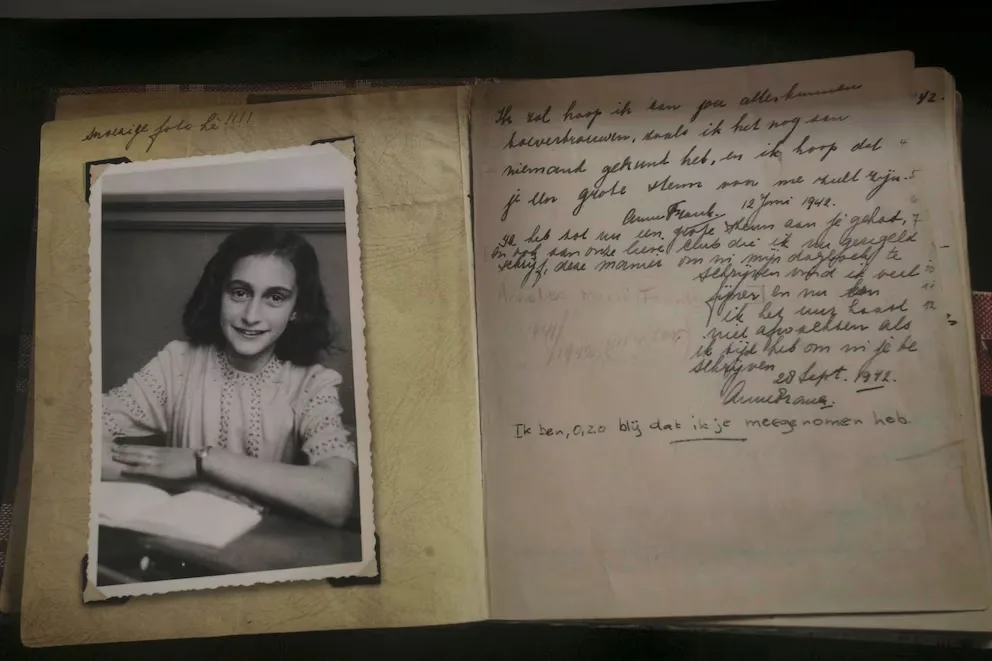 snoezige foto hè!!!!
Ik zal hoop ik aan jou alles kunnen
toevertrouwen, zoals ik het nog aan
niemand gekund heb, en ik hoop dat
je een grote steun voor me zult zijn.
Anne Frank. 12 Juni 1942.
Ik heb tot nu een grote steun aan je gehad,
en ook aan onze lieve club die ik nu geregeld
schrijf, deze manier om in mijn dagboek te
schrijven vind ik veel
fijner en nu kan
ik het uur haast
niet afwachten als
ik tijd heb om in je te
schrijven
28 Sept. 1942.
Anne Frank.
Ik ben, O, zo blij dat ik je meegenomen heb.
42.